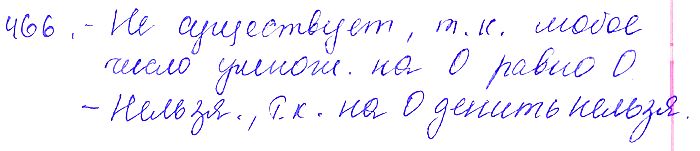 466. - Не существует, т.к. любое
число умнож. на 0 равно 0
- Нельзя., т.к. на 0 делить нельзя.